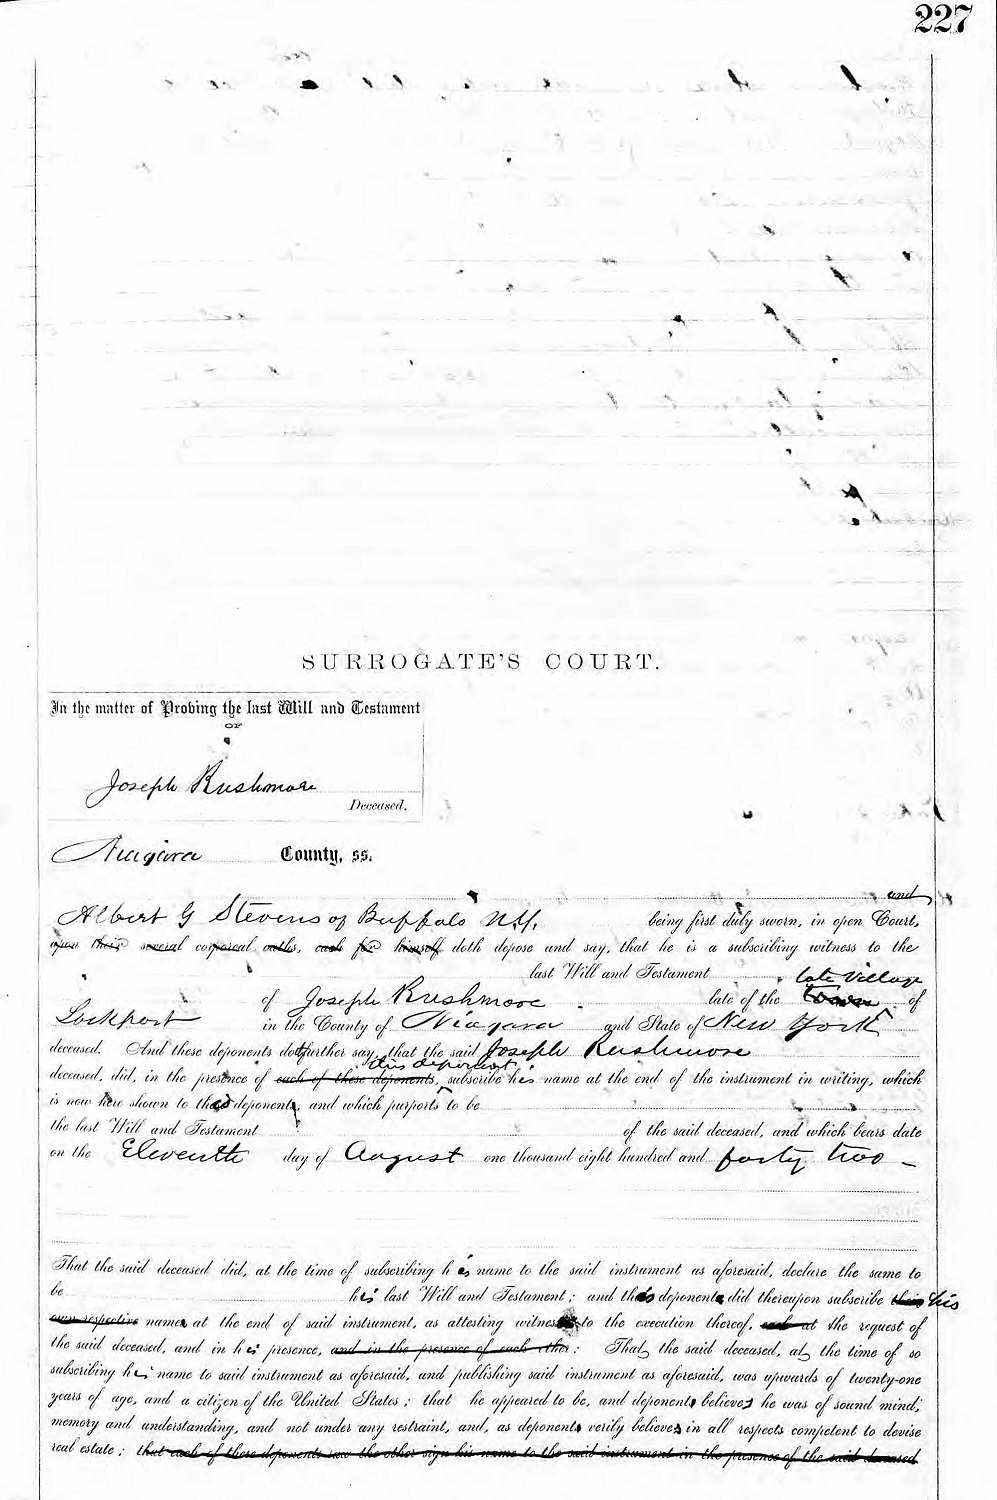 227
SURROGATE'S COURT.
In the matter of Probing the last Will and Testament
OF
Joseph Rushmore
Deceased.
Niagara County, ss.
and
Albert G Stevens of Buffalo N.Y. being first duly sworn, in open Court,
upon their several corporeal oaths, each for himself doth depose and say, that he is a subscribing witness to the
last Will and Testament late Village
of Joseph Rushmore late of the town of
Lockport in the County of Niagara and State of New York
deceased. And these deponents doth further say, that the said Joseph Rushmore
this deponent
deceased, did, in the presence of each of these deponents, subscribe his name at the end of the instrument in writing, which
is now here shown to the deponent, and which purports to be
the last Will and Testament of the said deceased, and which bears date
on the Eleventh day of August one thousand eight hundred and forty two
That the said deceased did, at the time of subscribing his name to the said instrument as aforesaid, declare the same to
be his last Will and Testament; and this deponent did thereupon subscribe their his
own respective name at the end of said instrument, as attesting witness to the execution thereof, each at the request of
the said deceased, and in his presence, and in the presence of each other: That the said deceased, at the time of so
subscribing his name to said instrument as aforesaid, and publishing said instrument as aforesaid, was upwards of twenty-one
years of age, and a citizen of the United States; that he appeared to be, and deponent believes he was of sound mind,
memory and understanding, and not under any restraint, and, as deponent verily believes in all respects competent to devise
real estate; that each of these deponents saw the other sign his name to the said instrument in the presence of the said deceased